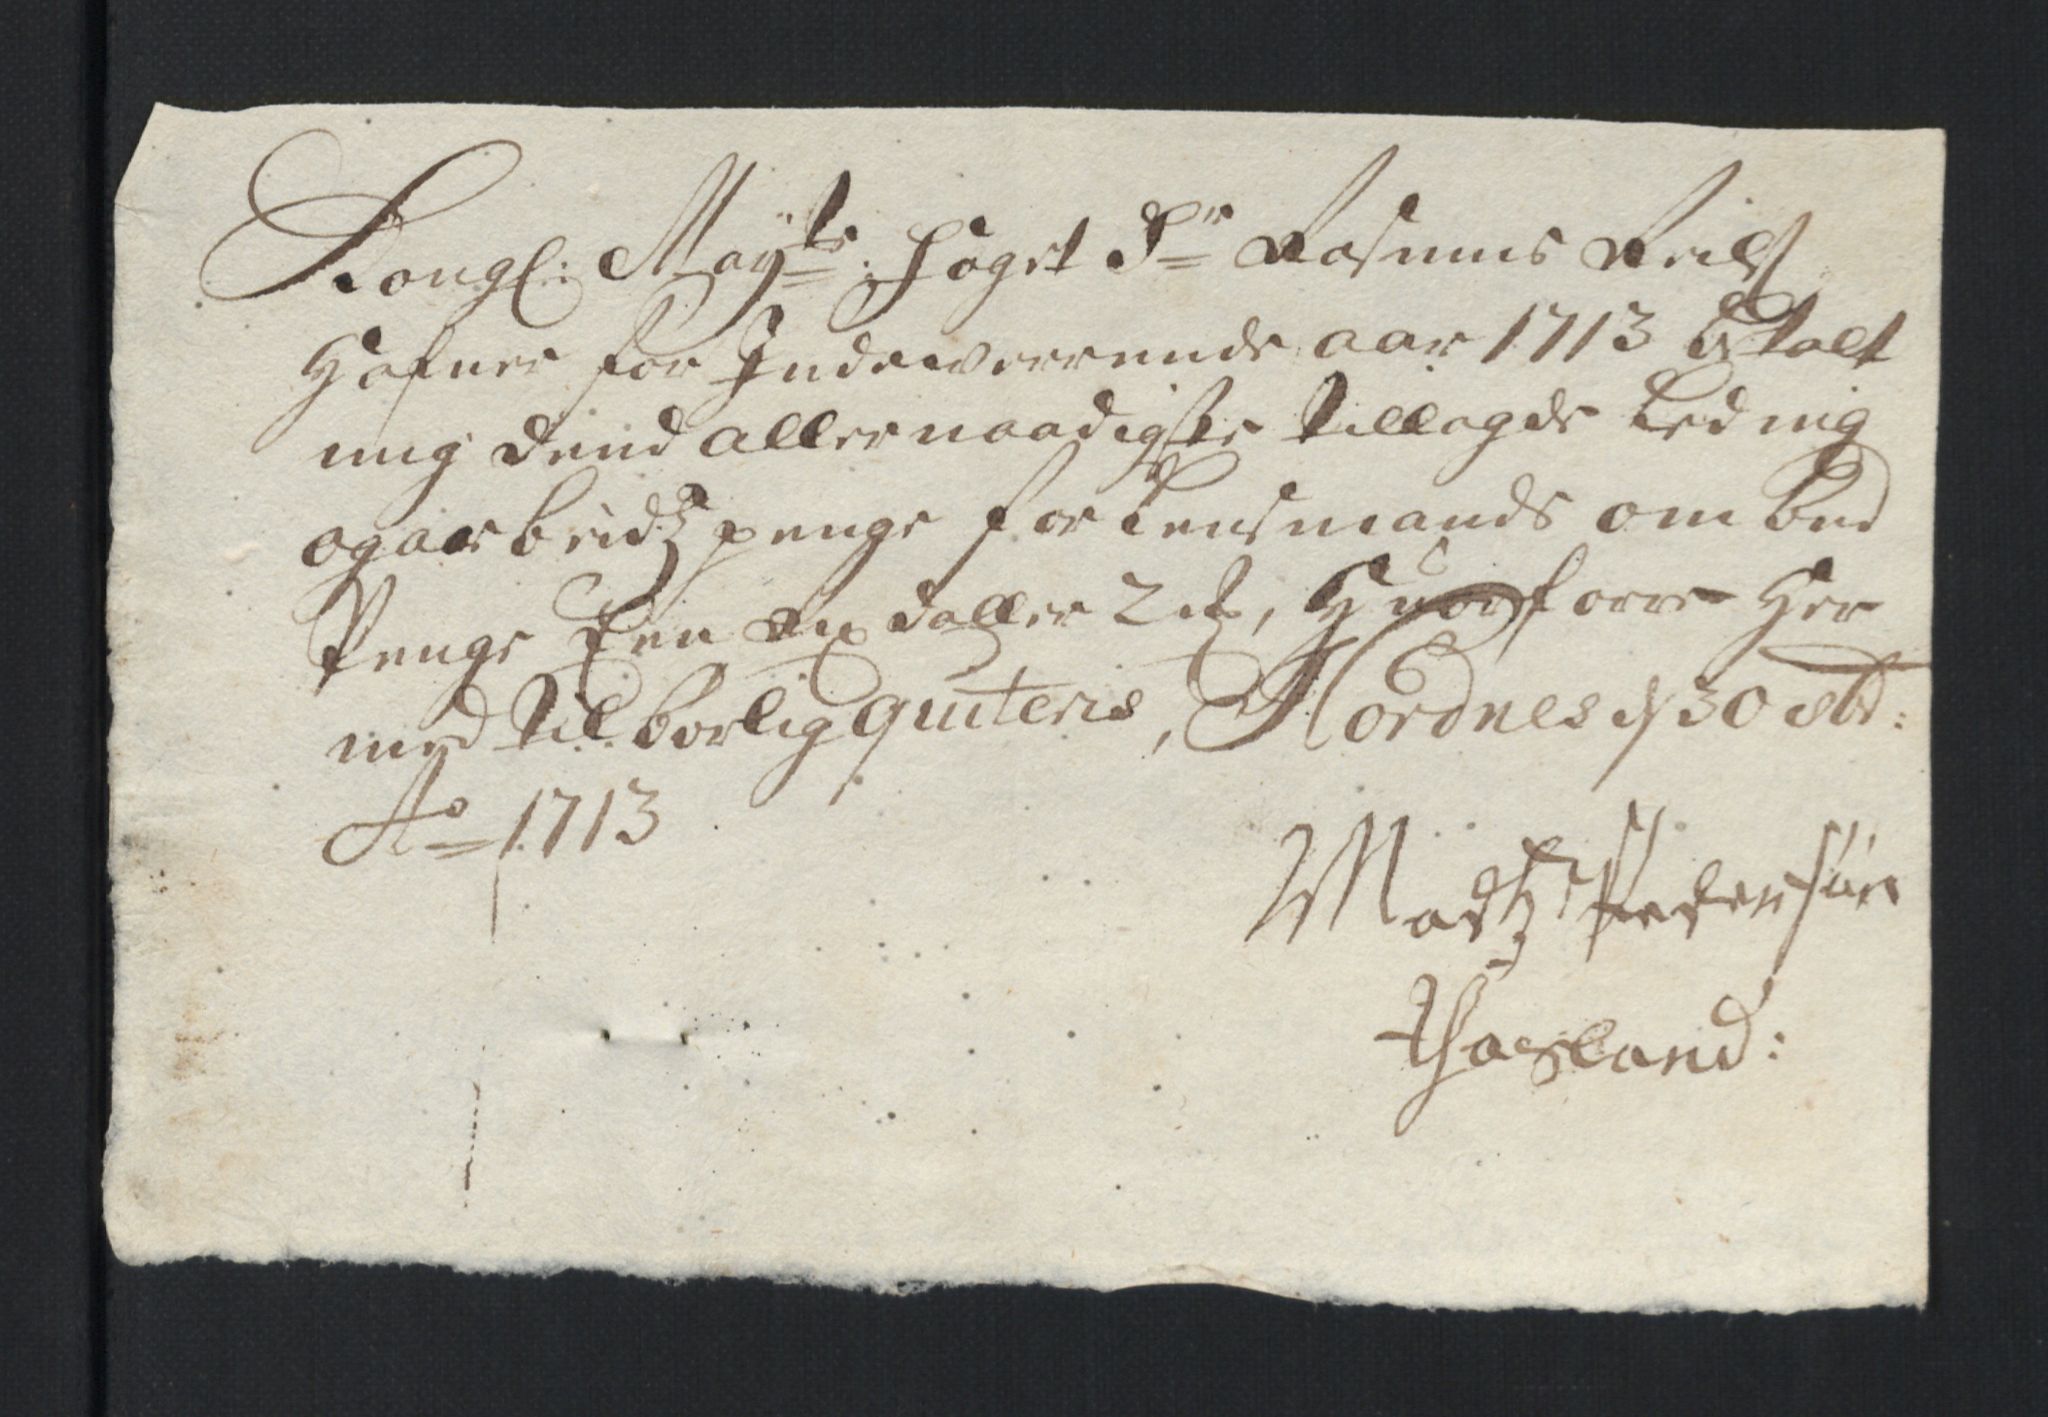 Kongl: Mayts: Foget Sr Rasmus
Hafver for Indeverrende aar 1713 betalt
mig dend allernaadigste tillagde Ledning
og arbeidtz penge for Lensmands ombud
Penge Een Rix daller 2 , Huorforre Her
med tilborlig quiteris, Nordnes d 30 :
Ao 1713
Madtz Pedersøn
: